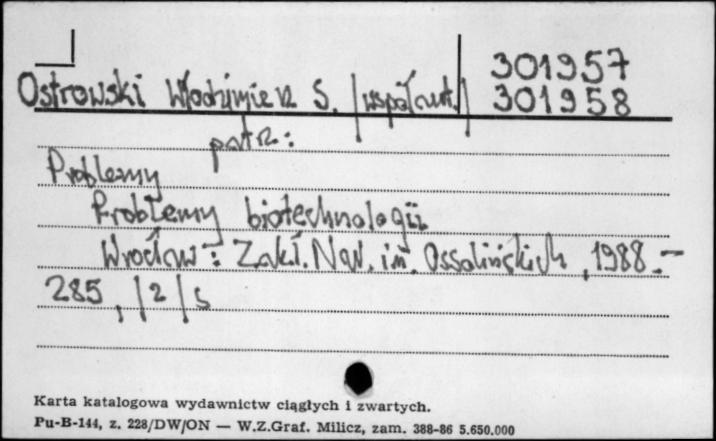 301957
Ostrowski Włodzimierz S. /współaut./ 301958
patrz:
Problemy
Problemy biotechnologii
Wrocław : Zakł. Nar. im. Ossolińskich, 1988.-
285, /2/ s
Karta katalogowa wydawnictw ciągłych i zwartych.
Pu-B-144, z. 228/DW/ON — W.Z.Graf. Milicz, zam. 388-86 5.650.000